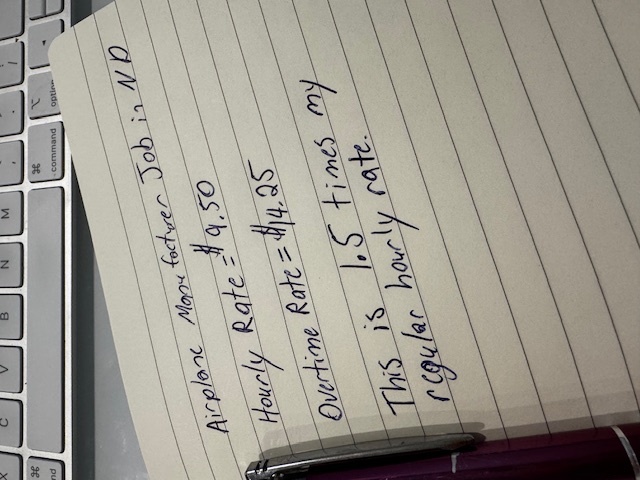 Airplane Manufacturer Job in ND
Hourly Rate = $9.50
Overtime Rate = $14.25
This is 1.5 times my
regular hourly rate.
M
N
B
V
C
X
command
option
⌘
⌥